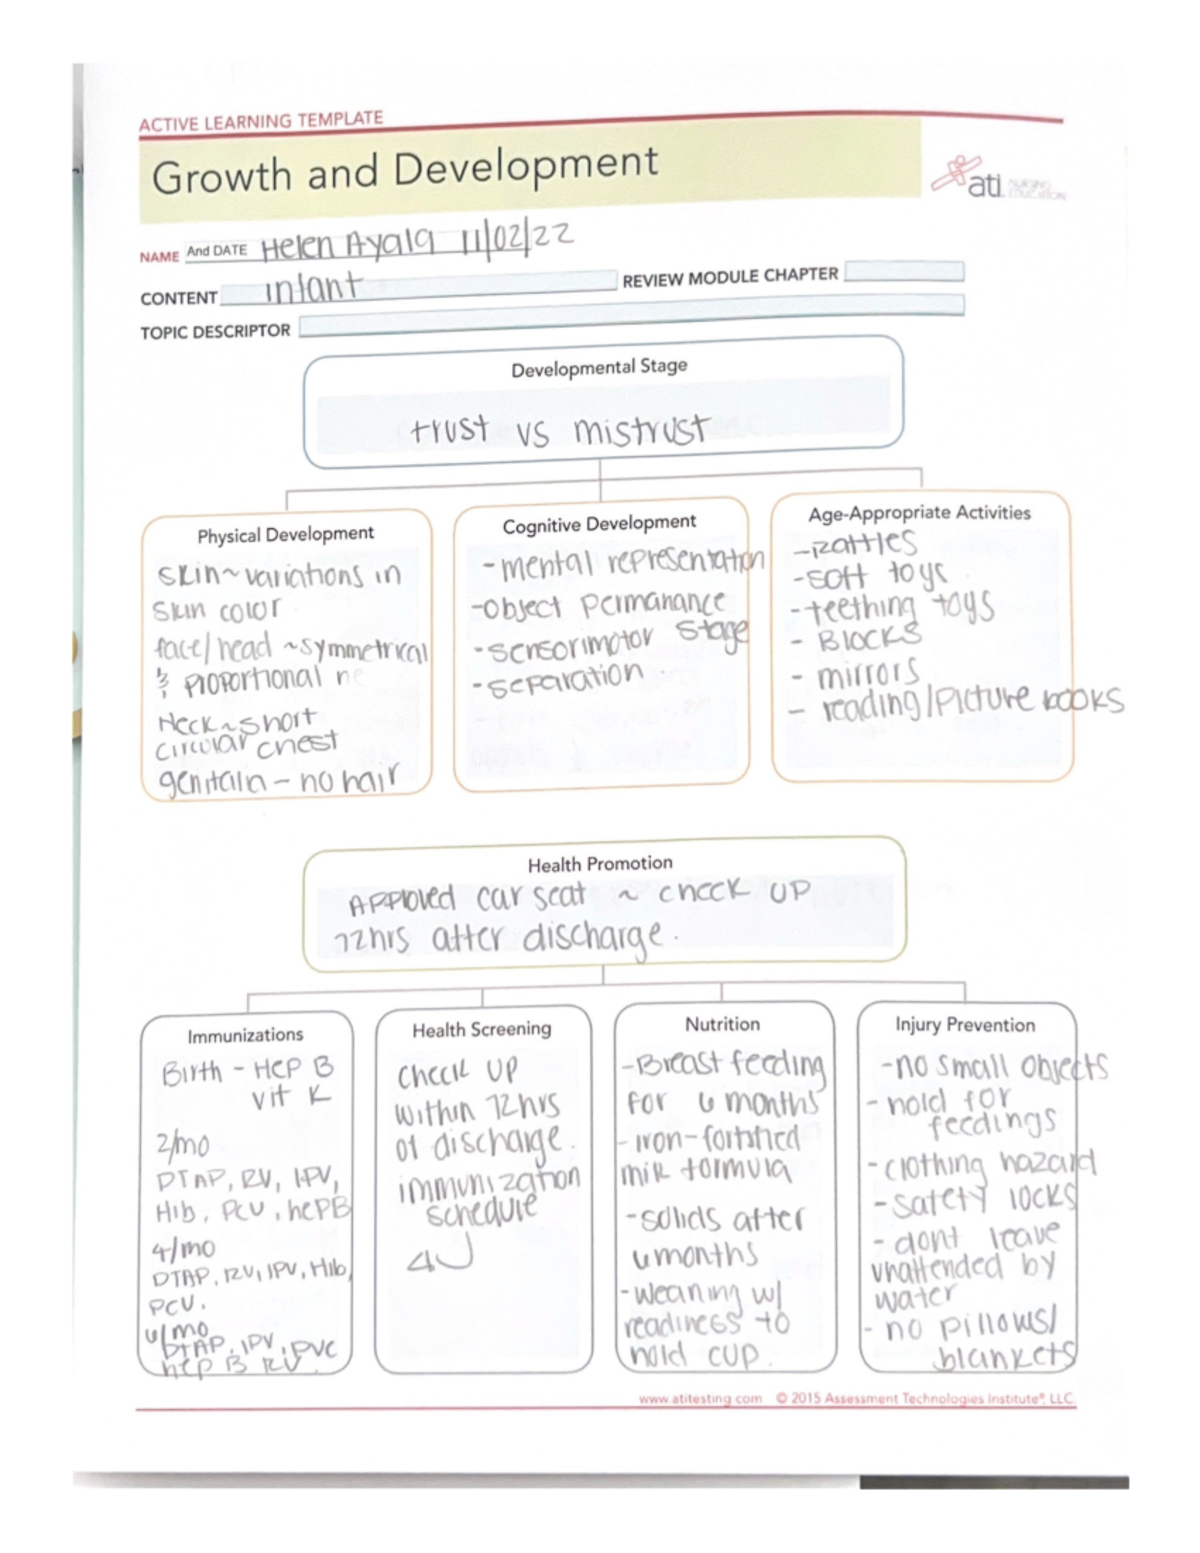 ACTIVE LEARNING TEMPLATE
Growth and Development
ati NURSING
EDUCATION
NAME And DATE Helen Ayala 11/02/22
CONTENT infant REVIEW MODULE CHAPTER
TOPIC DESCRIPTOR
Developmental Stage
trust vs mistrust
Physical Development
skin~variations in
skin color
face/head ~symmetrical
& proportional ne
Neck~short
circular chest
genitalia - no hair
Cognitive Development
-mental representation
-object permanance
-sensorimotor stage
-separation.
Age-Appropriate Activities
-Rattles
-soft toys
-teething toys
- Blocks
- mirrors
- reading/Picture books
Health Promotion
Approved car seat ~ check up
72hrs after discharge.
Immunizations
Birth - Hep B
vit K
2/mo
DTAP, RV, IPV,
Hib, PCV, hepB
4/mo
DTAP, RV, IPV, Hib,
PCV.
6/mo
DTAP, IPV, PVC
hep B RV.
Health Screening
check up
within 72hrs
of discharge.
immunization
schedule
Nutrition
-Breast feeding
for 6 months
- iron-fortified
milk formula
-solids after
6 months
-weaning w/
readiness to
hold cup.
Injury Prevention
-no small objects
- hold for
feedings
-clothing hazard
-safety locks
- dont leave
unattended by
water
- no pillows/
blankets
www.atitesting.com © 2015 Assessment Technologies Institute®, LLC